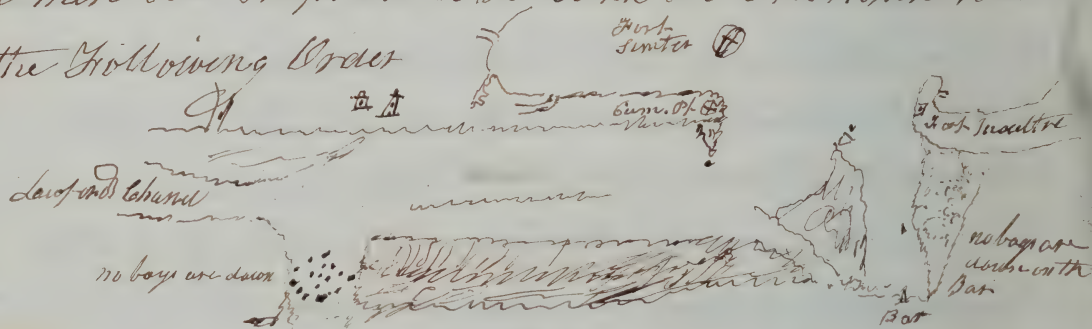 the Following Order
Fort
Sumter
Cum. Pt
Fort Moultre
Lawfords Channel
no boys are down
no boys are
down on th
Bar
Bar